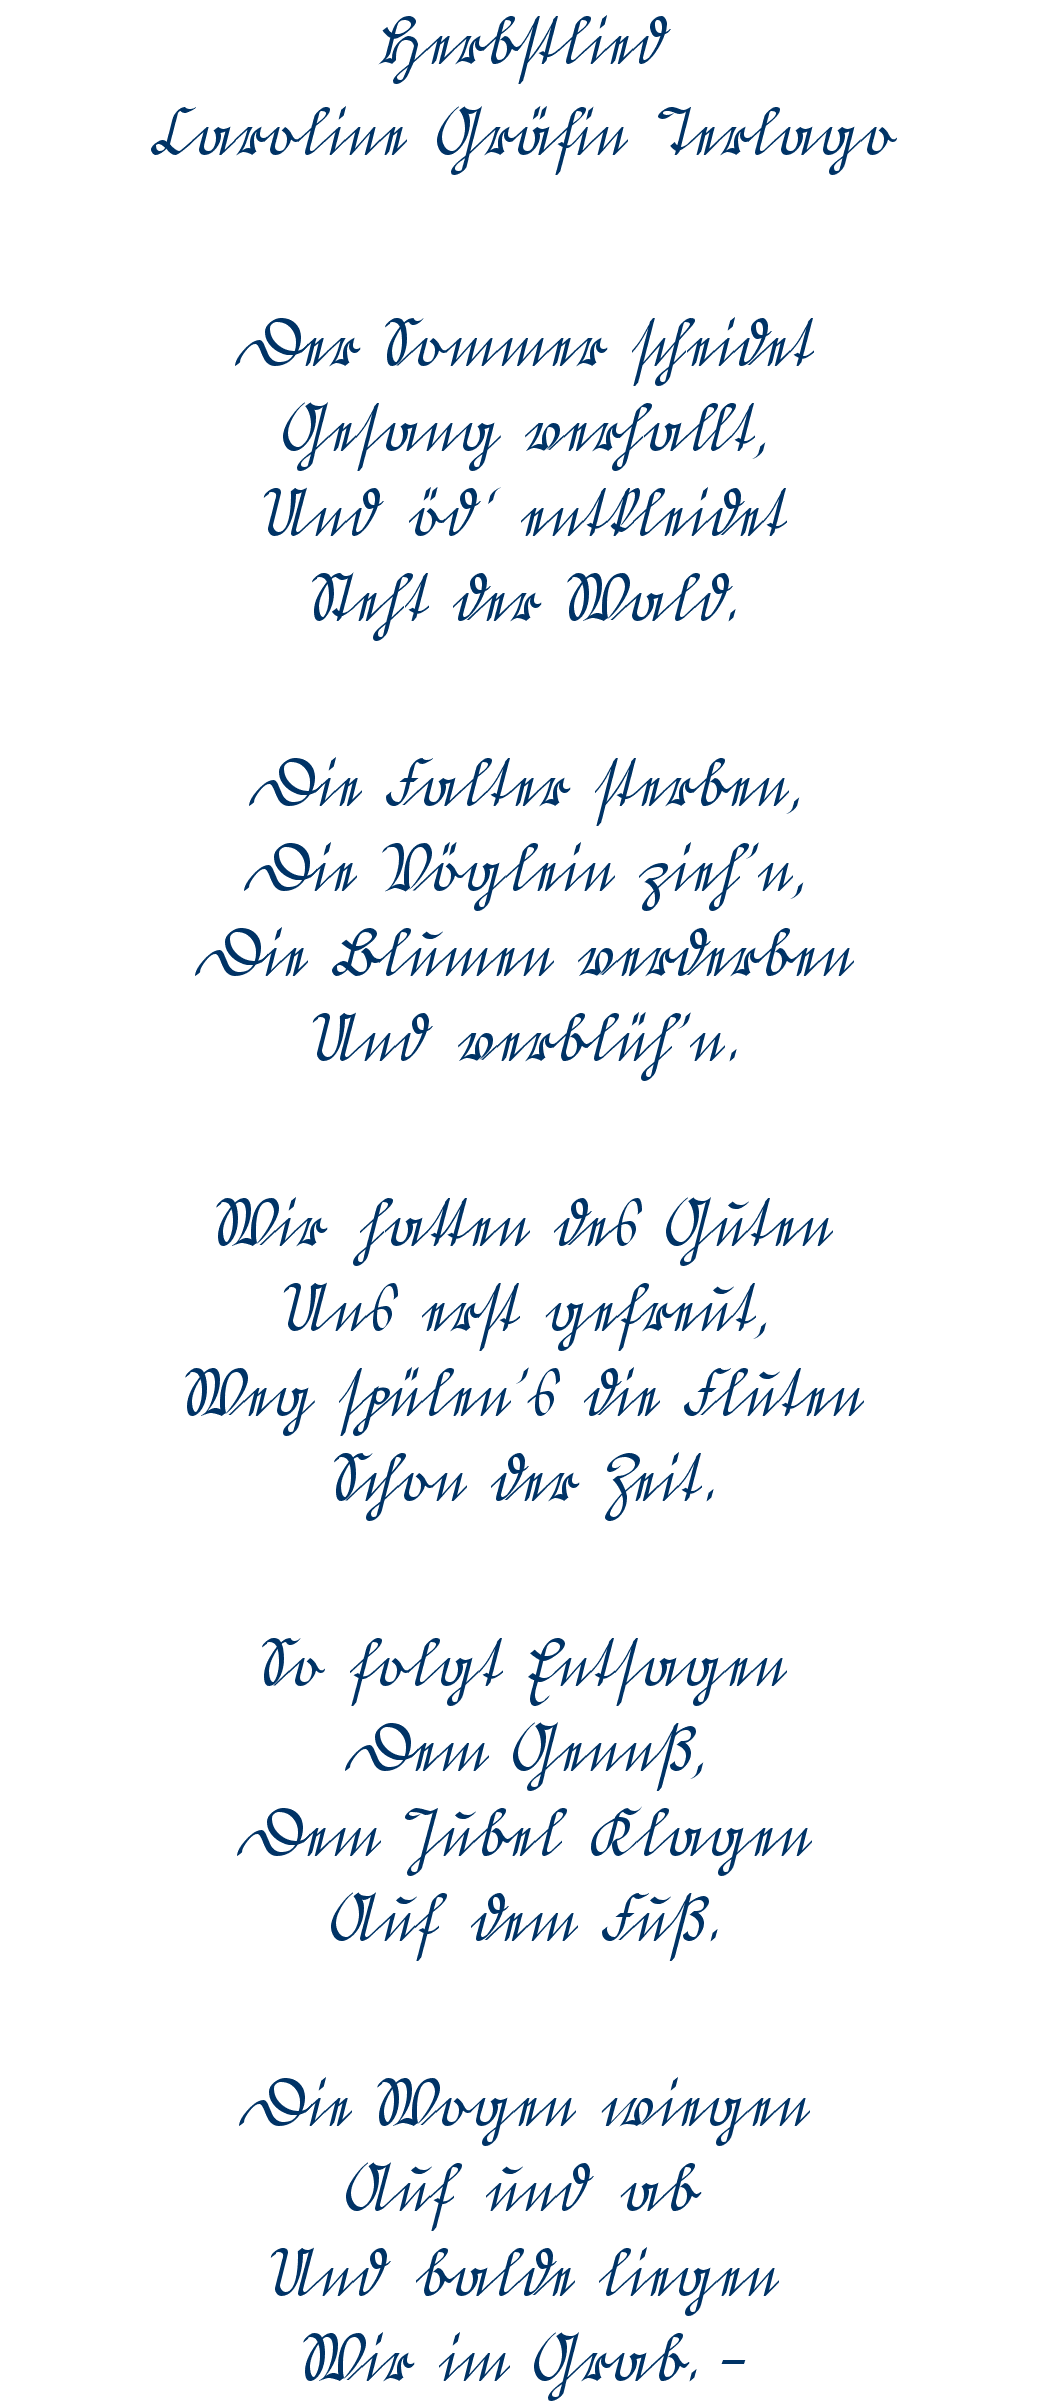 Herbstlied
Caroline Gräfin Terlago
Der Sommer scheidet
Gesang verhallt,
Und öd' entkleidet
Steht der Wald.
Die Falter sterben,
Die Vöglein zieh'n,
Die Blumen verderben
Und verblüh'n.
Wir hatten des Guten
Uns erst gefreut,
Weg spülen's die Fluten
Schon der Zeit.
So folgt Entsagen
Dem Genuß,
Dem Jubel Klagen
Auf dem Fuß.
Die Wogen wiegen
Auf und ab
Und balde liegen
Wir im Grab. –